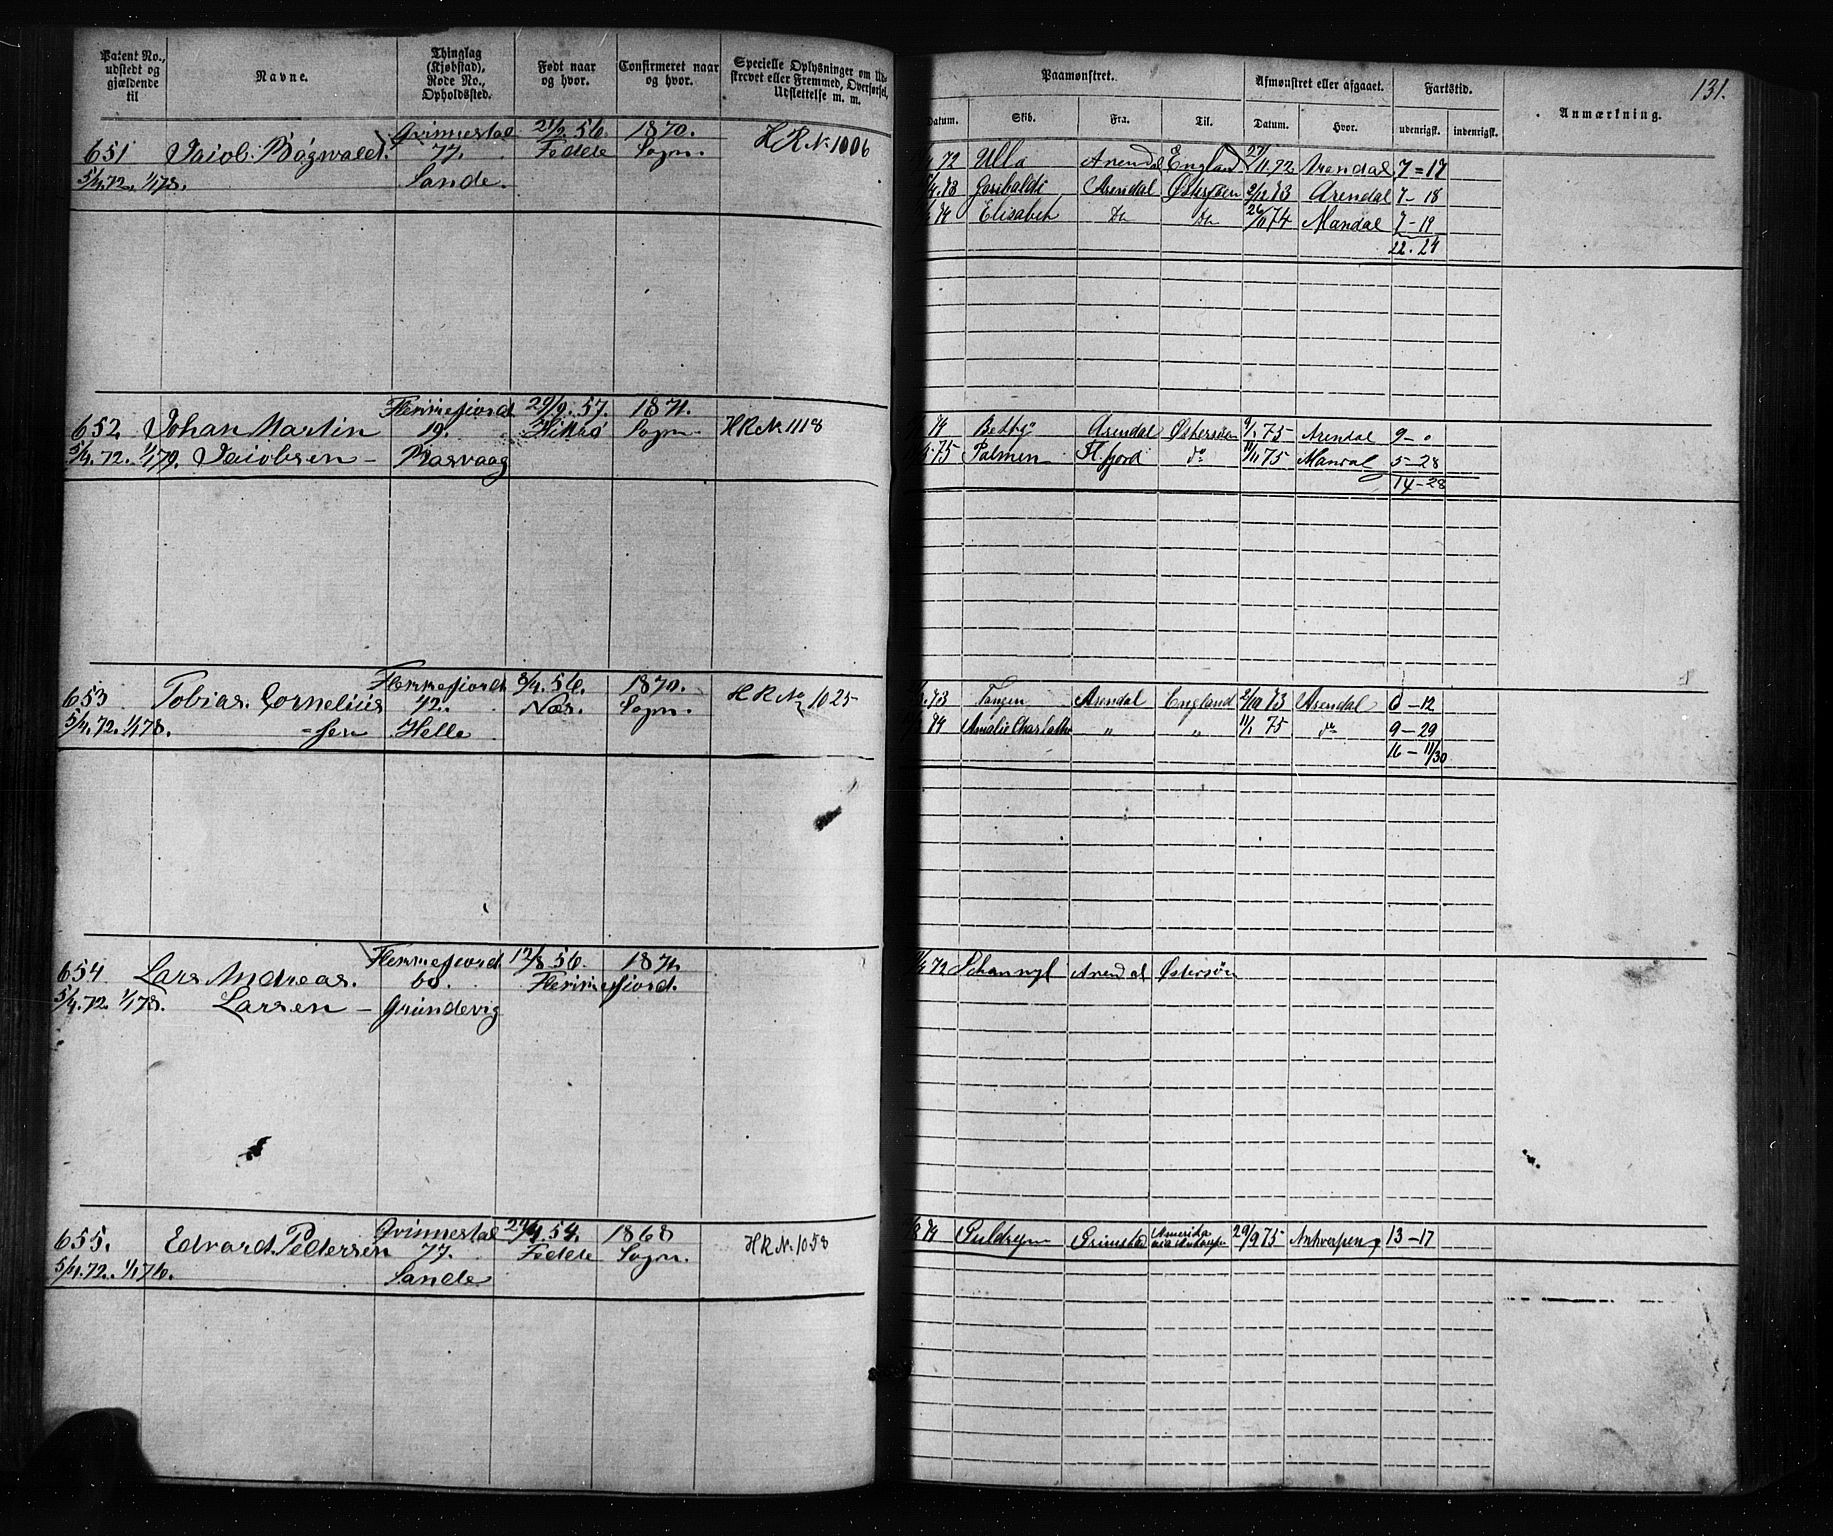 Patent No., udstedt og gjældende til
Navne.
Thinglag (Kjøbstad), Rode No., Opholdssted.
Født naar og hvor.
Confirmeret naar og hvor.
Specielle Oplysninger om Ud-
skrevet eller Fremmed, Overførsel,
Udslettelse m. m.
651 Jacob Bogwald. Qvinnesdal 21/2. 56. 1870. H R No 1006
77. Fedde Sogn.
5/4. 72. 1/1 78. Sande.
652. Johan Martin Flekkefiord 29/9. 57. 1871. H R No 1118
19. Hitterø Sogn.
5/4. 72. 1/1 79. Jacobsen – Rasvaag
653 Tobias Cornelius Flekkefiord 8/4. 56. 1870. H R No 1025
42. Næs. Sogn.
5/4. 72. 1/1 78. =sen Helle
654 Lars Andreas. Flekkefiord 12/8. 56. 1871.
60. Flekkefiord.
5/4. 72. 1/1 78. Larsen – Grundevig
655. Edvard Pedersen Qvinnesdal 54. 1868 H R No 1058
77. Fedde Sogn.
5/4. 72. 1/1 76. Sande
131.
Paamønstret. Afmønstret eller afgaaet. Fartstid. Anmærkning.
Datum. Skib. Fra. Til. Datum. Hvor. udenrigst. indenrigst.
72 Ulla Arendal England 27/11 72 Arendal 7 = 17
73 Garibaldi Arendal Østersøen 2/12 73 Arendal 7 – 18
74 Elisabeth Do Do 26/11 74 Mandal 7 – 19
22 – 24
74 Arendal Østersøen 9/1 75 Arendal 9 – 0
75 Palmen Flfjord do 11 75 Mandal 5 – 28
14 – 28
73 Tangen Arendal England 2/10 73 Arendal 6 – 12
74 Amalie Charlotte „ „ 11/1 75 do 9 – 29
16 – 11/30
72 Arendal Østersøn
74 Grimstad Amerika 29/9 75 Antwerpen 13 – 17